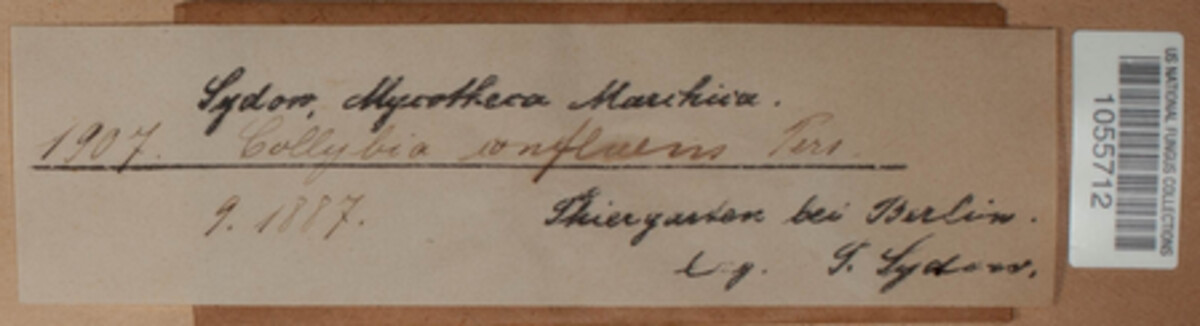 Sydow, Mycotheca Marchica.
1907. Collybia confluens Pers.
9. 1887. Thiergarten bei Berlin.
Leg. P. Sydow.
US NATIONAL FUNGUS COLLECTIONS
1055712